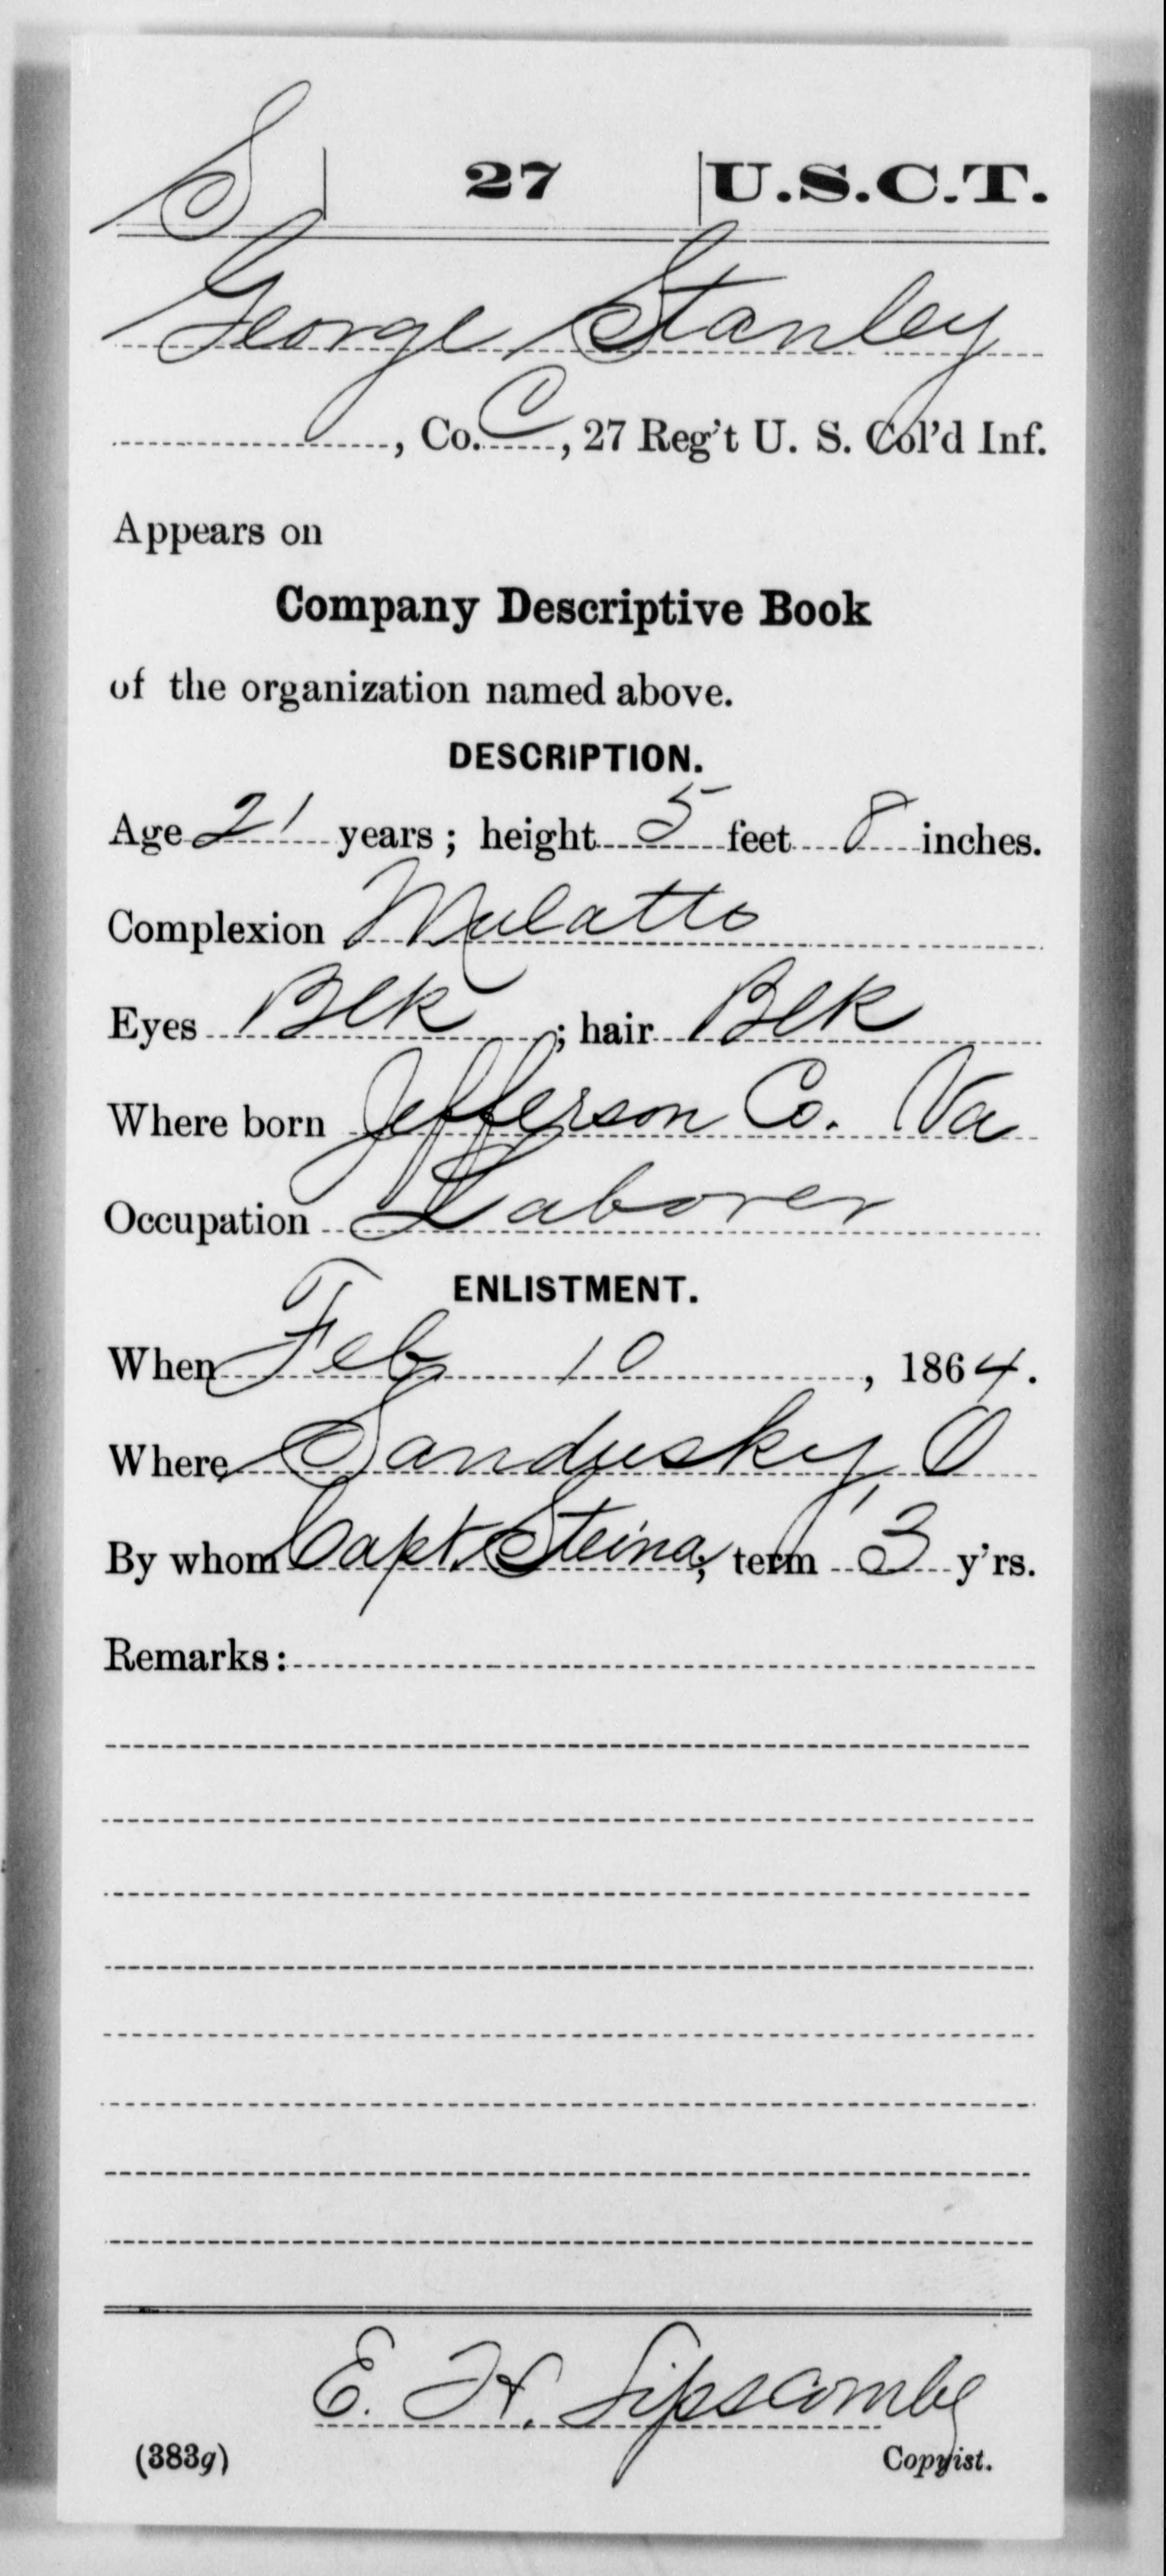 S | 27 | U.S.C.T.
George Stanley
, Co. C, 27 Reg't U. S. Col'd Inf.
Appears on
Company Descriptive Book
of the organization named above.
DESCRIPTION.
Age 21 years; height 5 feet 8 inches.
Complexion Mulatto
Eyes Blk; hair Blk
Where born Jefferson Co. Va
Occupation Laborer
ENLISTMENT.
When Feb 10, 1864.
Where Sandusky, O
By whom Capt. Steina; term 3 y'rs.
Remarks:
E. H. Lipscombe
(383g) Copyist.